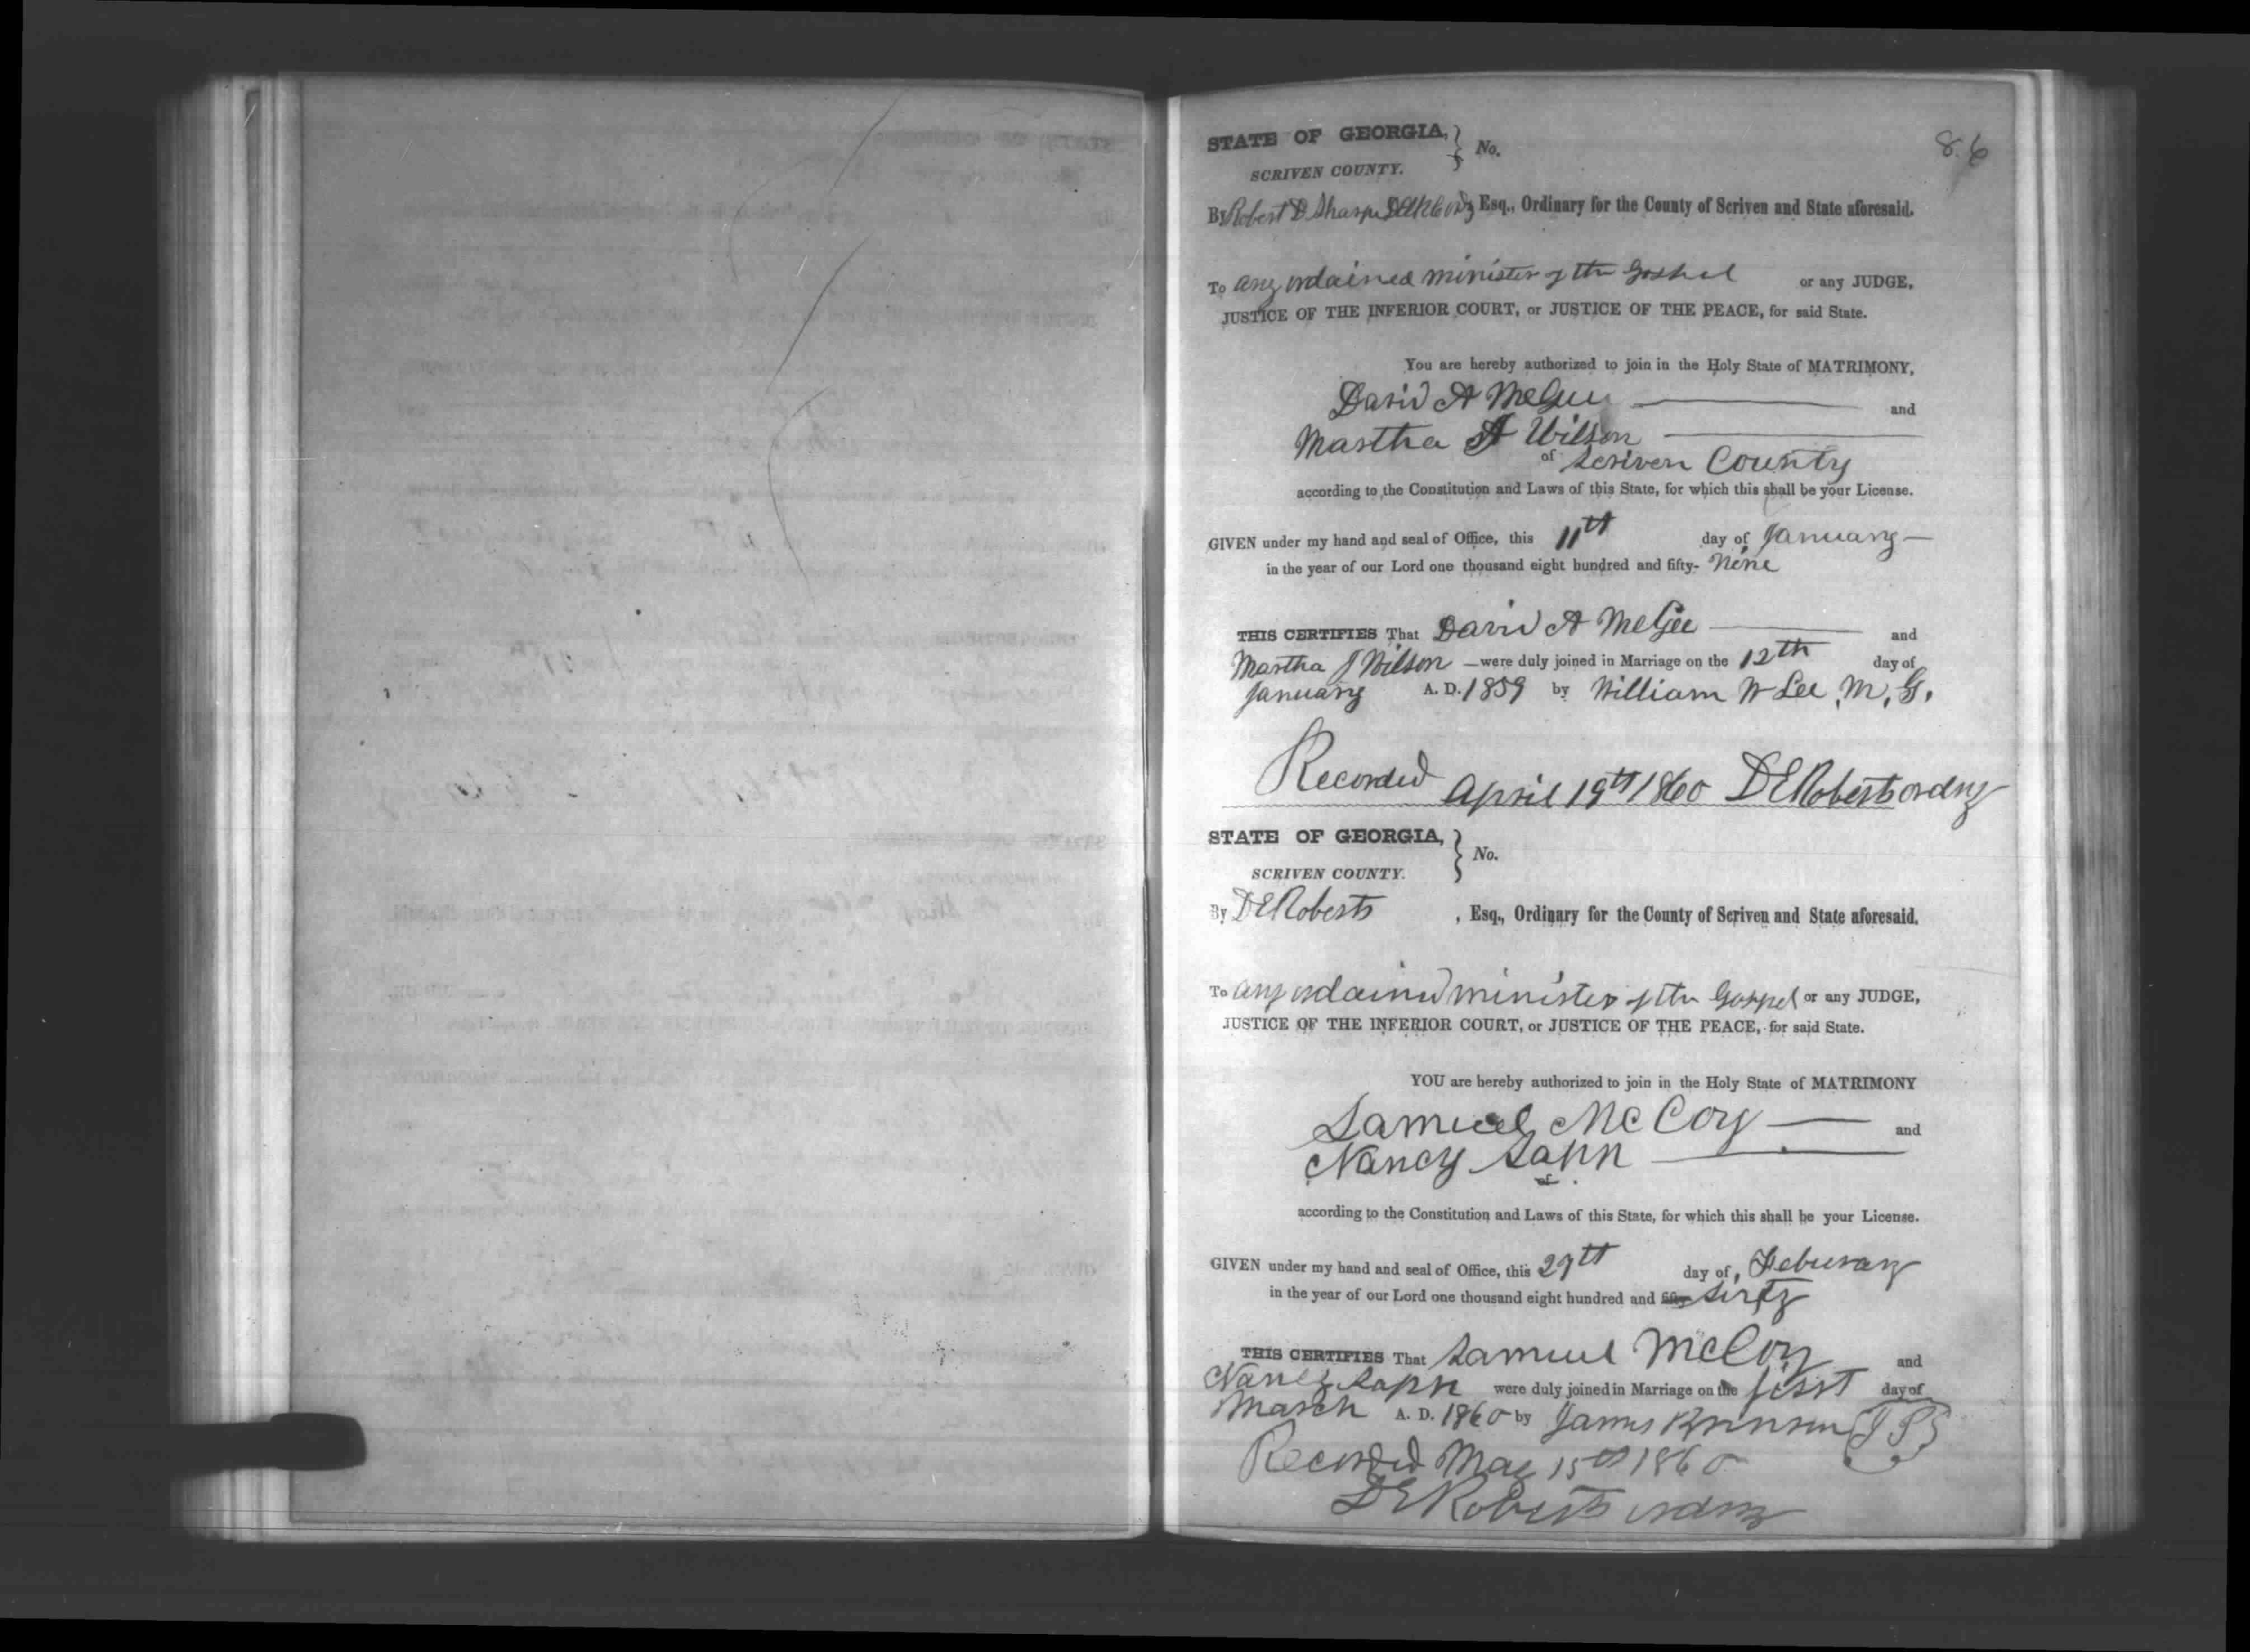 86
STATE OF GEORGIA, } No.
SCRIVEN COUNTY.
By Robert D Sharpe Esq., Ordinary for the County of Scriven and State aforesaid.
To any ordained minister of the Gospel or any JUDGE,
JUSTICE OF THE INFERIOR COURT, or JUSTICE OF THE PEACE, for said State.
You are hereby authorized to join in the Holy State of MATRIMONY,
David A McGee and
Martha A Wilson
of Scriven County
according to the Constitution and Laws of this State, for which this shall be your License.
GIVEN under my hand and seal of Office, this 11th day of January
in the year of our Lord one thousand eight hundred and fifty- Nine
THIS CERTIFIES That David A McGee and
Martha J Wilson were duly joined in Marriage on the 12th day of
January A. D. 1859 by William W Lee, M, G,
Recorded April 19th 1860 D E Roberts ordny
STATE OF GEORGIA, } No.
SCRIVEN COUNTY.
By D E Roberts , Esq., Ordinary for the County of Scriven and State aforesaid.
To any ordained minister of the Gospel or any JUDGE,
JUSTICE OF THE INFERIOR COURT, or JUSTICE OF THE PEACE, for said State.
YOU are hereby authorized to join in the Holy State of MATRIMONY
Samuel McCoy and
Nancy Sapp
of
according to the Constitution and Laws of this State, for which this shall be your License.
GIVEN under my hand and seal of Office, this 29th day of, Feburary
in the year of our Lord one thousand eight hundred and fifty- Sixty
THIS CERTIFIES That Samuel McCoy and
Nancy Sapp were duly joined in Marriage on the first day of
March A. D. 1860 by James Brinson J P
Recorded May 15th 1860
D E Roberts ordny